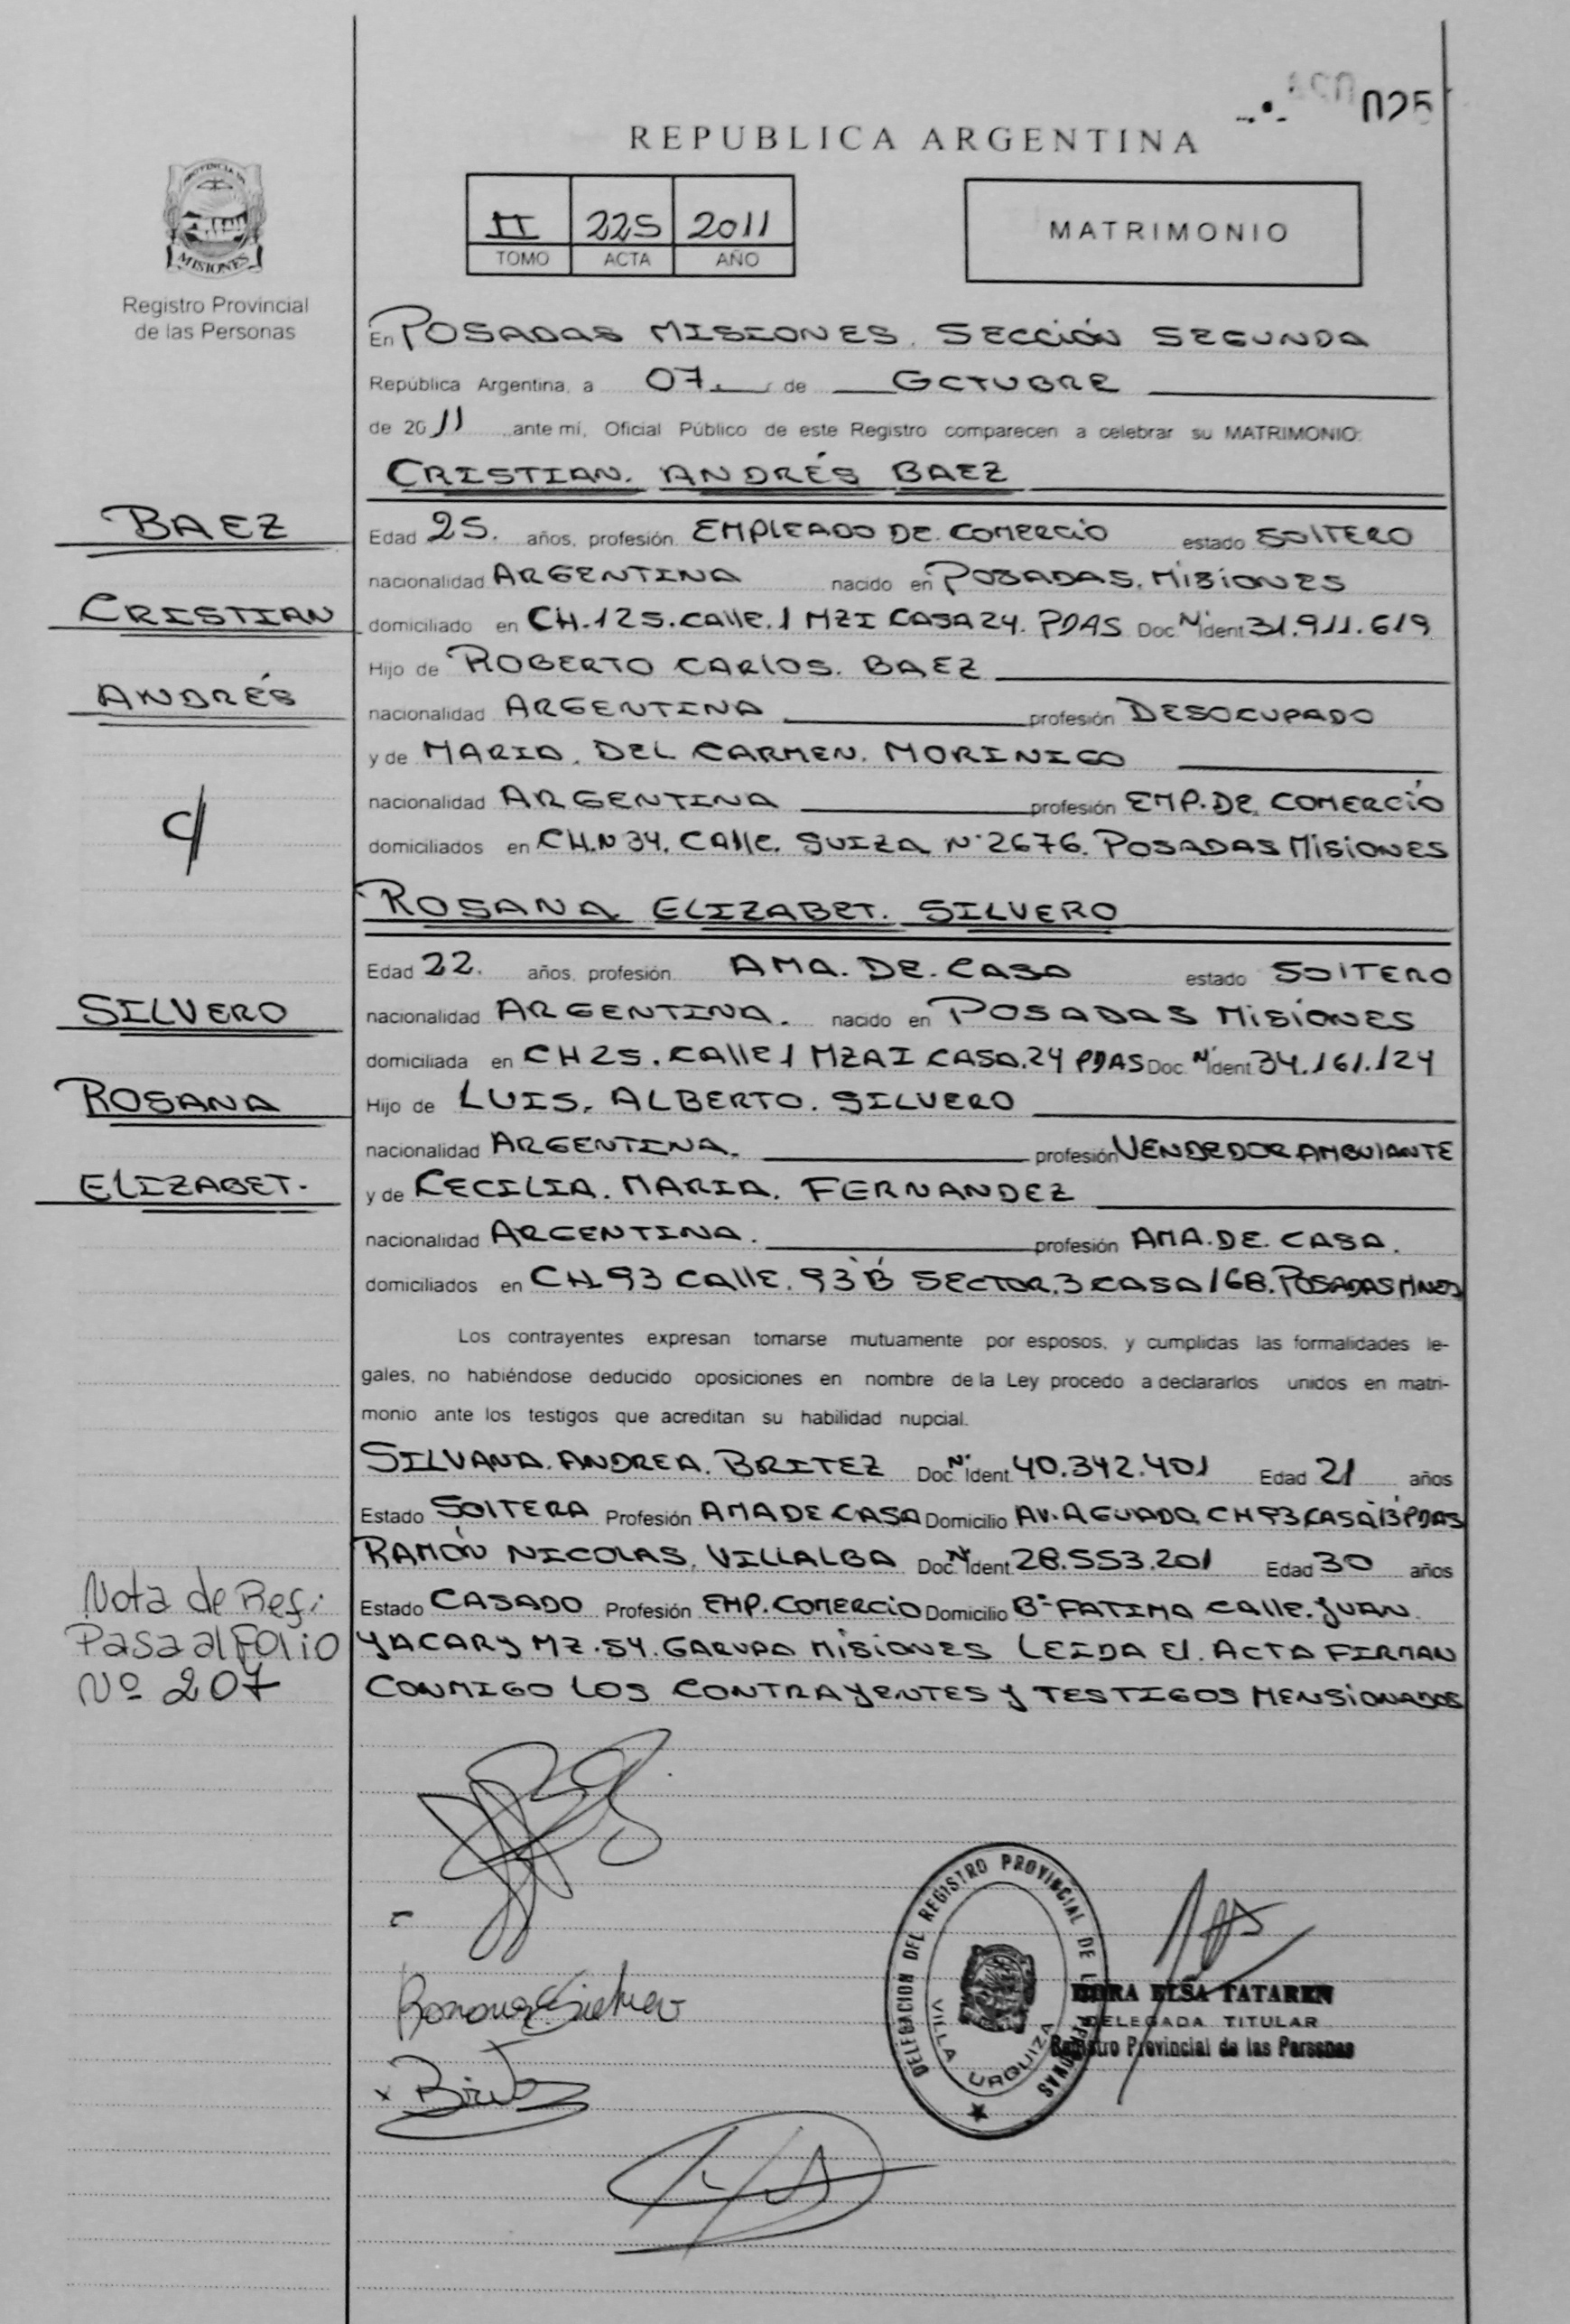 025
REPUBLICA ARGENTINA
PROVINCIA DE
MISIONES
Registro Provincial
de las Personas
II 225 2011
TOMO ACTA AÑO
MATRIMONIO
En POSADAS MISIONES. SECCIÓN SEGUNDA
República Argentina, a 07. de OCTUBRE
de 2011 ante mí, Oficial Público de este Registro comparecen a celebrar su MATRIMONIO:
CRISTIAN. ANDRÉS BAEZ
BAEZ
Edad 25. años, profesión EMPLEADO DE. COMERCIO estado SOLTERO
nacionalidad ARGENTINA nacido en POSADAS. MISIONES
CRISTIAN
domiciliado en CH.125.CALLE.1 MZI CASA 24. PDAS Doc. Nº Ident 31.911.619
Hijo de ROBERTO CARLOS. BAEZ
ANDRÉS
nacionalidad ARGENTINA profesión DESOCUPADO
y de MARIA. DEL CARMEN. MORINIGO
nacionalidad ARGENTINA profesión EMP. DE. COMERCIO
C/
domiciliados en CH.N 34. CALLE. SUIZA Nº 2676. POSADAS MISIONES
ROSANA ELIZABET. SILVERO
Edad 22. años, profesión AMA. DE. CASA estado SOLTERO
SILVERO
nacionalidad ARGENTINA. nacido en POSADAS MISIONES
domiciliada en CH 25. CALLE 1 MZA I CASA.24 PDAS Doc. Nº Ident 34.161.124
ROSANA
Hijo de LUIS. ALBERTO. SILVERO
nacionalidad ARGENTINA. profesión VENDEDOR AMBULANTE
ELIZABET.
y de CECILIA. MARIA. FERNANDEZ
nacionalidad ARGENTINA. profesión AMA. DE. CASA.
domiciliados en CH 93 CALLE. 93 B SECTOR.3 CASA 168. POSADAS MNES
Los contrayentes expresan tomarse mutuamente por esposos, y cumplidas las formalidades le-
gales, no habiéndose deducido oposiciones en nombre de la Ley procedo a declararlos unidos en matri-
monio ante los testigos que acreditan su habilidad nupcial.
SILVANA. ANDREA. BRITEZ Doc. Nº Ident. 40.342.401 Edad 21 años
Estado SOLTERA Profesión AMA DE CASA Domicilio AV. AGUADO. CH 93 CASA 13 PDAS
RAMÓN NICOLAS. VILLALBA Doc. Nº Ident. 28.553.201 Edad 30 años
Estado CASADO Profesión EMP. COMERCIO Domicilio Bº FATIMA CALLE. JUAN
YACARY MZ. 54. GARUPA MISIONES LEIDA El. ACTA FIRMAN
CONMIGO LOS CONTRAYENTES Y TESTIGOS MENSIONADOS
Nota de Ref:
Pasa al Folio
Nº 207
DELEGACION DEL REGISTRO PROVINCIAL DE LAS PERSONAS
VILLA URQUIZA
DORA ELSA TATAREN
DELEGADA TITULAR
Registro Provincial de las Personas